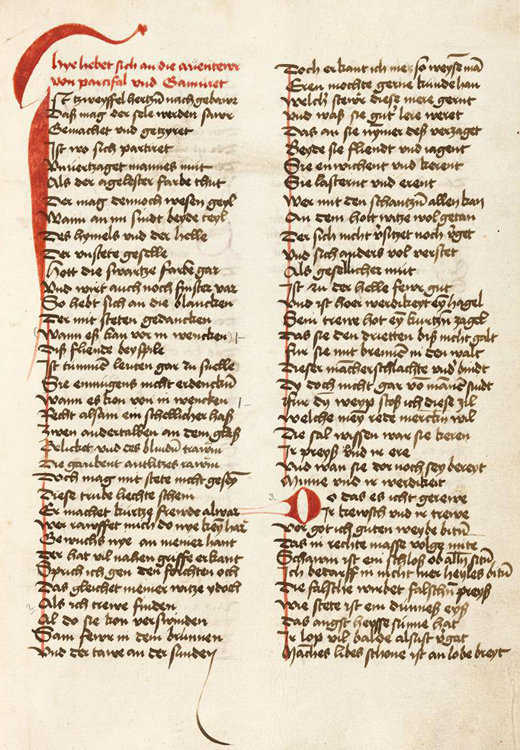 Hye hebet sich an die auentewr
von parcifal vnd Gamuret
Ist tzweyffel hertzn nachgebawr
Das mag der sele werden sawr
Gemachet vnd getzyret
Ist wo sich partiret
Vnuertzaget mannes mut
Als der agelster farbe thut
Der mag dennoch wesen geyl
Wann an im sindt beyde teyl
Des hymels vnd der helle
Der vnstete geselle
Hott die swartze farbe gar
Vnd wirt auch noch finster var
So hebt sich an die blancken
Der mit steten gedancken
Diß fliende beyspile
Ist tummen leuten gar zu snelle
Sie enmugens nicht erdencken
Wann es kan vor in wencken
Recht alsam ein schellicher haß
Zwen anderthalben an dem glaß
Gelicket vnd des blinden trawm
Die gaubent antlitzes rawm
Doch mag mit stete nicht gesey
Diese trube liechte schein
Er machet kurtze frewde alwar
Wer rawfft mich do nye key har
Gewuchs nye an meiner hant
Der hat vil nahen griffe erkant
Sprich ich gen den forchten och
Das gleichet meiner witze ydoch
Als ich trewe finden
Al do sie kan verswinden
Sam fewr in dem brunnen
Vnd der tawe an der sunden
Doch erkant ich nie so weysen man
Er en mochte gerne kunde han
Welch stewr diese mere gernt
Vnd waß sie gut lere wernt
Das an sie nymer deß vertzaget
Beyde sie fliendt vnd iaget
Sie entwichent vnd kerent
Sie lasternt vnd erent
Wer mit den schantzn allen kan
An dem hott witze wol getan
Der sich nicht vsitzet noch vget
Vnd sich anders vol verstet
Als geselicher mut
Ist zu der helle fewr gut
Vnd ist hoer werdikeyt ey hagel
Sein trewe hot ey kurtzn zagel
Das sie den dritten biß nicht galt
Fur sie mit bremen in den walt
Dieser mancherschlachte vnd bindt
Fur dy weyp stoß ich diese zil
Welche mey rede mercken wil
Die sal wissen war sie keren
Ir preyß vnd ir ere
Vnd wan sie dar noch sey bereyt
Mynne vnd ir werdikeit
Do das es icht gerewe
Ir kewsch vnd ir trewe
Vor got ich guten weybe bitn
Das in rechte masse volge mite
Scham ist ein schloß ob alln sitn
Ich bedarff in nicht mer heyles bitn
Die falsche worbet falschn preyß
Wie stete ist ein dunneß eyß
Das angst heysse sunne hat
Ir lop vil balde alsust zgat
Manches libes schone ist an lobe breyt